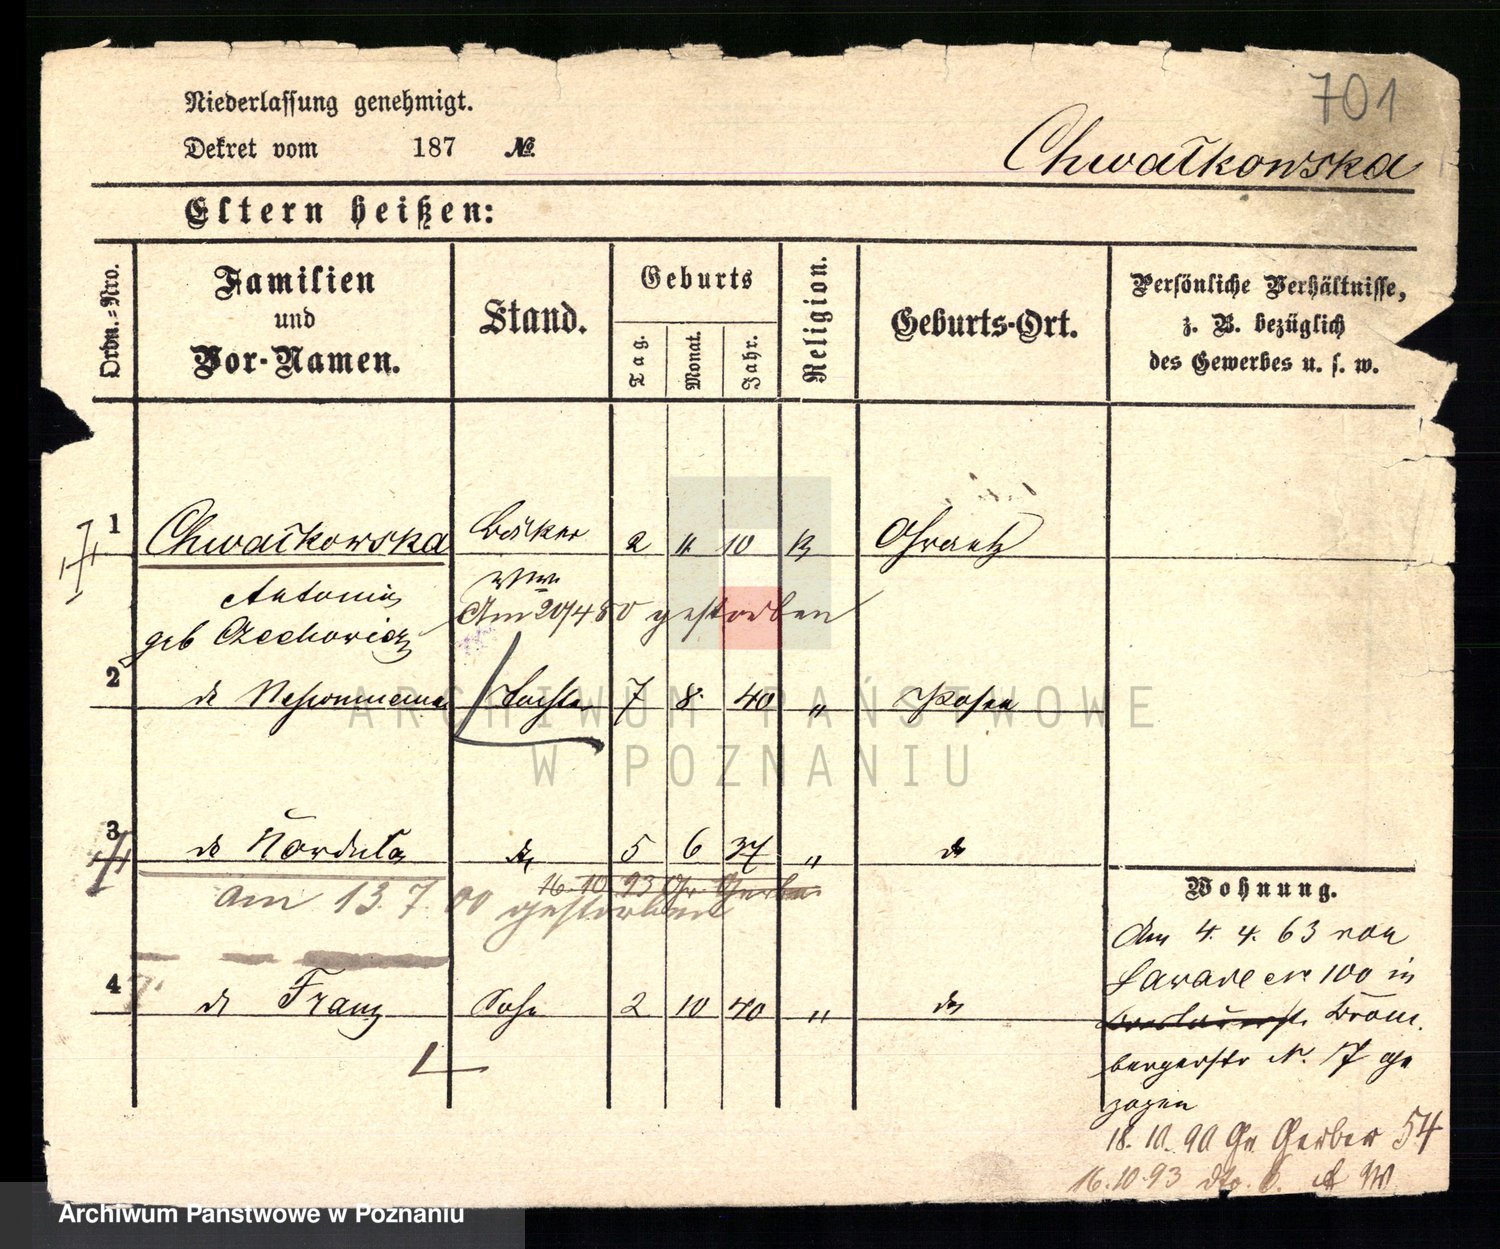 701
Niederlassung genehmigt.
Dekret vom 187 №.
Chwałkowska
Eltern heißen:
Ordn.=Nro.
Familien
und
Vor-Namen.
Stand.
Geburts
Tag.
Monat.
Jahr.
Religion.
Geburts-Ort.
Persönliche Verhältnisse,
z. B. bezüglich
des Gewerbes u. s. w.
1 Chwałkowska Bäcker 2 11 10 Graetz
Antonie Wwe
geb Czechowicz Am 20/4 80 gestorben
2 do Nepomucena Tochter 7 8 40 " Posen
3 do Kordula do 5 6 37 " do
16.10.93 Gr Gerber
am 13.7.00 gestorben
4 do Franz Sohn 2 10 40 " do
Wohnung.
Am 4. 4. 63 von
Zawade No 100 in
Brom
bergerstr N. 17 ge
zogen
18. 10. 90 Gr Gerber 54
16.10.93 dto.
ARCHIWUM PAŃSTWOWE
W POZNANIU
Archiwum Państwowe w Poznaniu